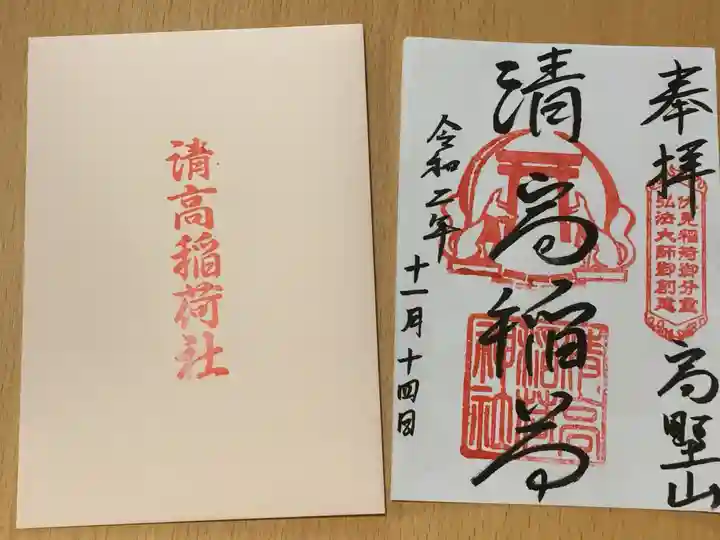 清高稲荷社
奉拝
伏見稲荷御分霊
弘法大師御創建
高野山
清高稲荷
清高
稲荷
神社
令和二年
十一月十四日